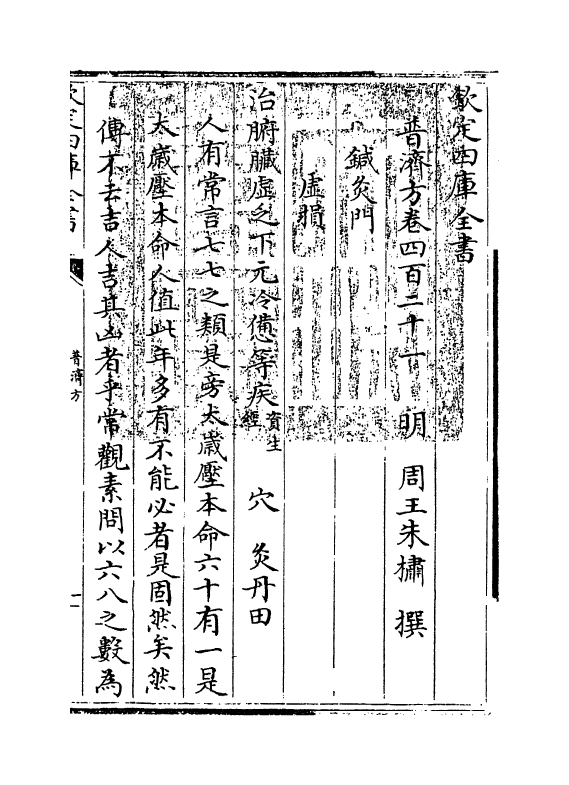 欽定四庫全書
普濟方卷四百二十一 明 周王朱橚 撰
鍼灸門
虛損
治腑臟虛乏下元冷憊等疾資生經 穴 灸丹田
人有常言七七之類是旁太歲壓本命六十有一是
太歲壓本命人值此年多有不能必者是固然矣然
傳不云吉人吉其凶者乎常觀素問以六八之數為
欽定四庫全書
普濟方
一